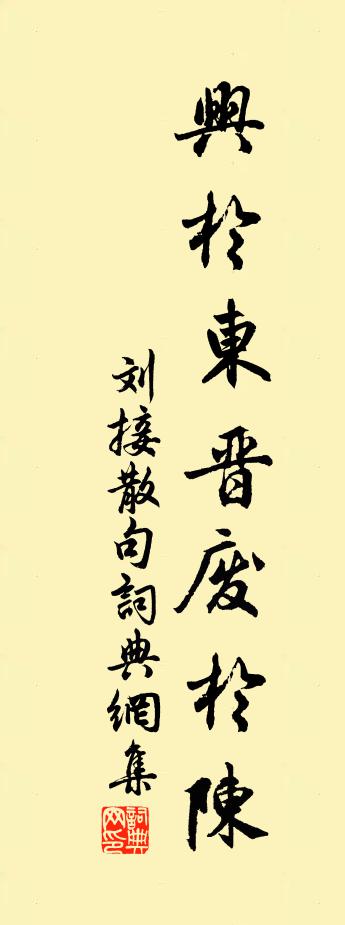 興於東晋废於陳
刘接散句詞典網集
詞典网印